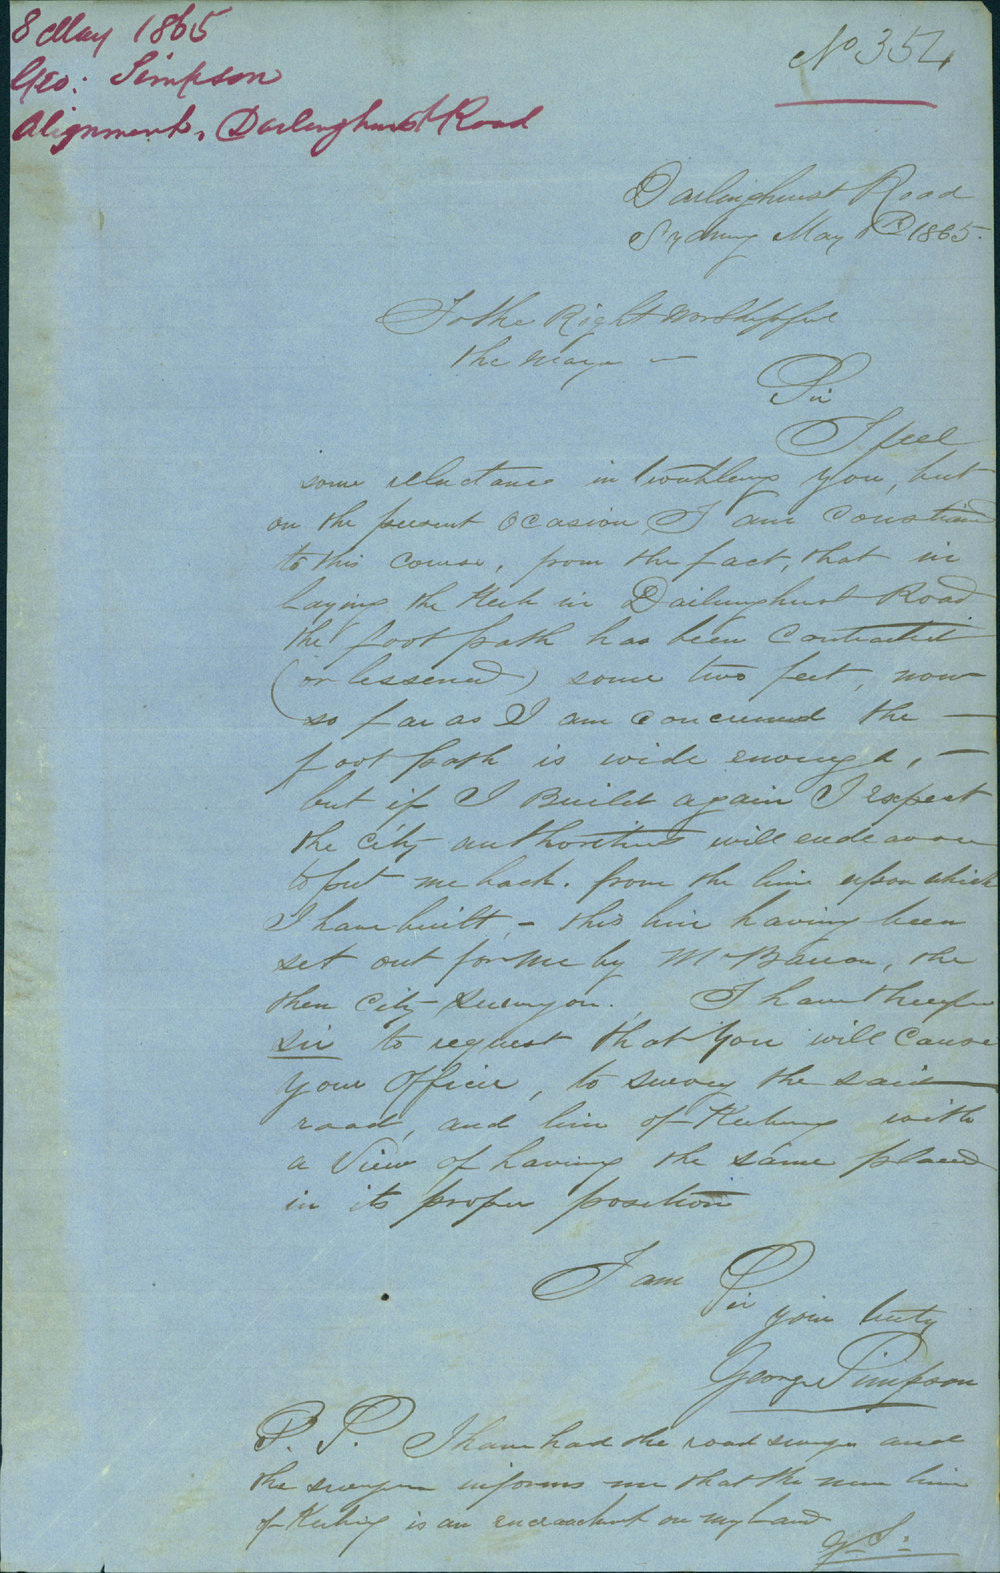 8 May 1865
Geo: Simpson
Alignment, Darlinghurst Road
No 354
Darlinghurst Road
Sydney May 8th 1865.
To the Right Worshipful
the Mayor —
Sir
I feel
some reluctance in troubling you, but
on the present ocasion I am Constrained
to this course, from the fact, that in
laying the Kerb in Darlinghurst Road
the foot path has been Contracted
(or lessened) some two feet, now
so far as I am concerned the —
foot path is wide enough, —
but if I Build again I expect
the City authorities will endeavour
to put me back. from the line upon which
I have built, - this line having been
set out for me by Mr Barron, the
then City Surveyor. I have therefore
Sir to request that you will Cause
your Officer, to survey the said
road, and line of Kerbing with
a View of having the same placed
in its proper position
I am Sir
your
George Simpson
P. S. I have had the road survey and
the surveyor informs me that the new line
of Kerbing is an encroachment on my land
G. S.